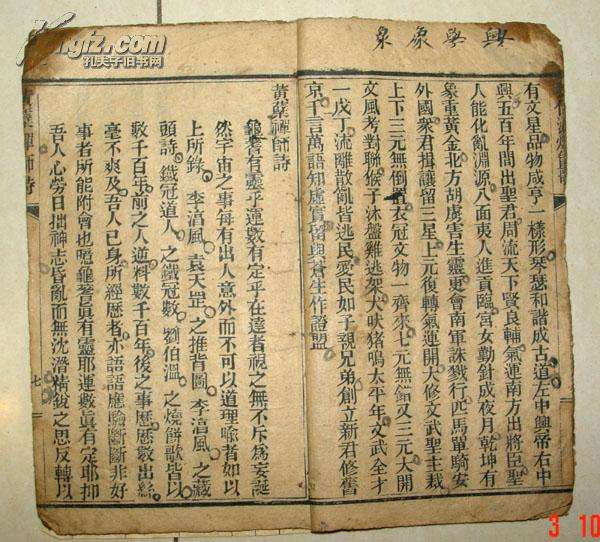 kongfz.com
孔夫子旧书网
興 學 象 象
有文星品物咸亨一樣形琴瑟和諧成古道左中興帝右中
興五百年間出聖君周流天下賢良輔氣運南方出將臣聖
人能化亂淵源八面夷人進貢臨宮女勤針成夜月乾坤有
象重黃金北方胡虜害生靈更會南軍誅戮行匹馬單騎安
外國衆君揖讓留三星上元復轉氣運開大修文武聖主裁
上下三元無倒置衣冠文物一齊來七元無錯又三元大開
文風考對聯猴子沐盤雞逃架犬吠猪鳴太平年文武全才
一戊丁流離散亂皆逃民愛民如子親兄弟創立新君修舊
京千言萬語知虛實留與蒼生作證盟
黃蘗禪師詩
龜蓍有靈乎運數有定乎在達者視之無不斥為妄誕
然宇宙之事每有出人意外而不可以道理喻者如以
上所錄李淳風袁天罡之推背圖李淳風之藏
頭詩鐵冠道人之鐵冠數劉伯溫之燒餅歌皆以
數千百年前之人逆料數千百年後之事歷歷數出絲
毫不爽及吾人已身所經歷者亦語語應驗斷斷非好
事者所能附會也噫龜蓍真有靈耶運數真有定耶抑
吾人心勞日拙神志昏亂而無沈潛精銳之思反轉以
黃蘗禪師詩
七
3 10